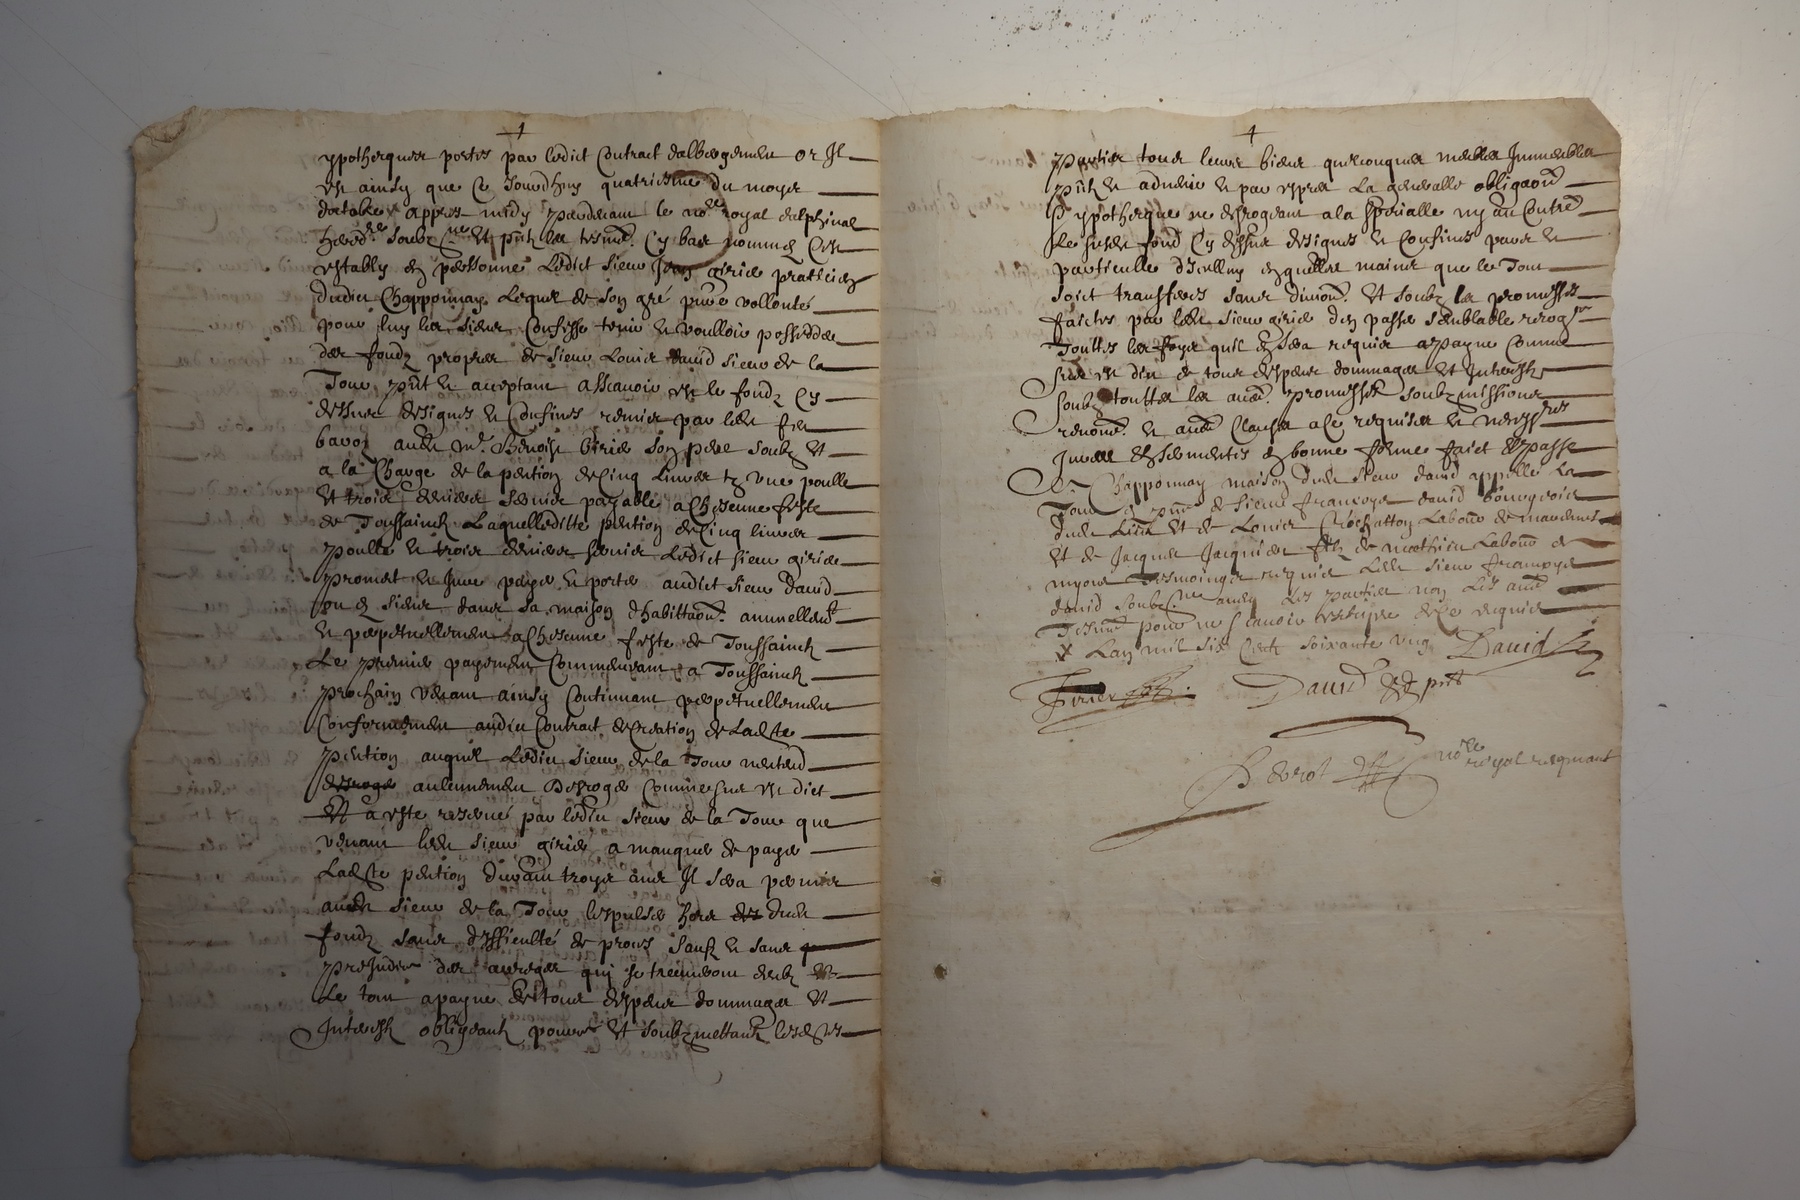 ypothecques portes par ledict Contract dalbergement or Il
est ainsy que Ce Jourdhuy quatriesme du moys
doctobre appres midy pardevant le no.re royal dalphinal
hered.re soubz.ne Et pnt les tesmo. Cy bas nommes C'est
estably en personne Ledict sieur girier pratticien
dudict Chapponnay Lequel de son gré pure vollonté
pour luy les siens Confesse tenir et voulloir posseder
des fondz propres de sieur Louis david sieur de la
Tour pnt et acceptant assavoir est le fondz Cy
dessus designes et Confines remis par led
audit M.e Benoist Girier son pere soubz Et
a la Charge de la pention de Cinq Livres une poulle
Et trois deniers servis payable a Chescune feste
de Toussainctz Laquelleditte pention de Cinq livres
poulle et trois deniers servis Ledict sieur girier
promet et Jure payer et porter audict sieur David
ou es siens dans sa maison d'habittaon. annuellemt
et perpetuellement a Chescune feste de Toussainctz
Le premier payement Commencant a Toussainctz
prochain venant ainsy Continuant perpetuellement
Conformement audict Contract de Creation de Ladite
pention auquel Ledict sieur de la Tour n'entend
desroger aulcunement Desroger Comme sus est dict
Et a este reservé par ledict sieur de la Tour que
venant led sieur girier a manquer de payer
Ladite pention durant troys ans Il sera permis
audit sieur de la Tour l'expulser hors des dud
fondz sans difficulté de proces sauf et sans
prejudice des arreages qui se treuveront deubz
Le tout a payne de tous despens dommages Et
Interestz obligeant pource Et soubzmettantz lesdites
parties tous leurs biens quelconques meubles Immeubles
pntz et advenir et par expres La generalle obligaon
hypothecque ne desrogeant a la specialle ny au Contre
Le susd fond Cy dessus designes et Confines
particulle d'Icelluy en quelles mains que le Tout
soict transferes sans divion. Et soubz les promesses
faictes par led sieur girier d'en passer semblable recog.ce
Touttes les foys quil en sera requis a payne Comme
sus est dit de tous despens dommages et Interestz
soubz touttes les aues. promesses soubzmissions
renom. et aues Clauses a Ce requises et necess.res
Jurees Et sermentis en bonne forme faict Et passe
a Chapponnay maison dud sieur david appelle La
Tour en pnce de sieur francoys david bourgeois
dud Lieu Et de Louis Labour de
Et de Jacques Jacquier filz de mathieu Labour de
myons Tesmoings requis Led sieur francoys
david soubz.ne avec Les parties non Les aues
Tesmo. pour ne scavoir escripre de Ce requis
Lan mil six Cent soixante ung David
Girier
David pnt
Perrot no.re royal recepvant